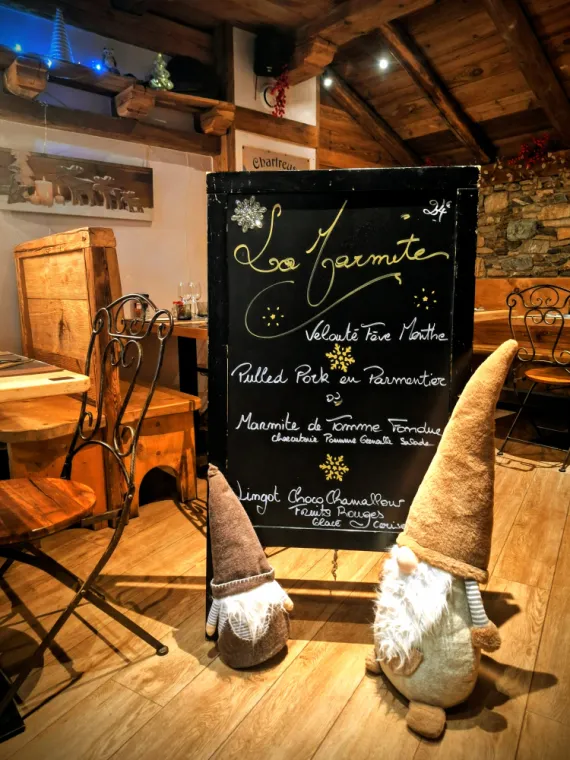 Chartreuse
24€
La Marmite
Velouté Fève Menthe
Pulled Pork en Parmentier
ou
Marmite de Tomme Fondue
charcuterie Pomme Grenaille Salade
Lingot Choco Chamallow
Fruits Rouges
Glace Cerise